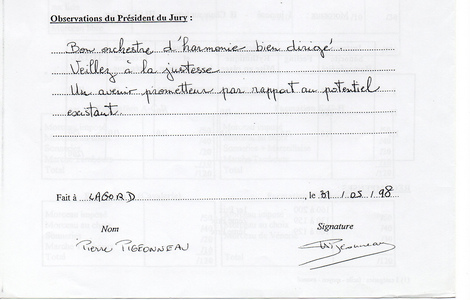 Observations du Président du Jury :
Bon orchestre d'harmonie bien dirigé.
Veillez à la justesse
Un avenir prometteur par rapport au potentiel
existant.
Fait à LAGORD, le 31 / 05 / 98
Nom Signature
Pierre PIGEONNEAU